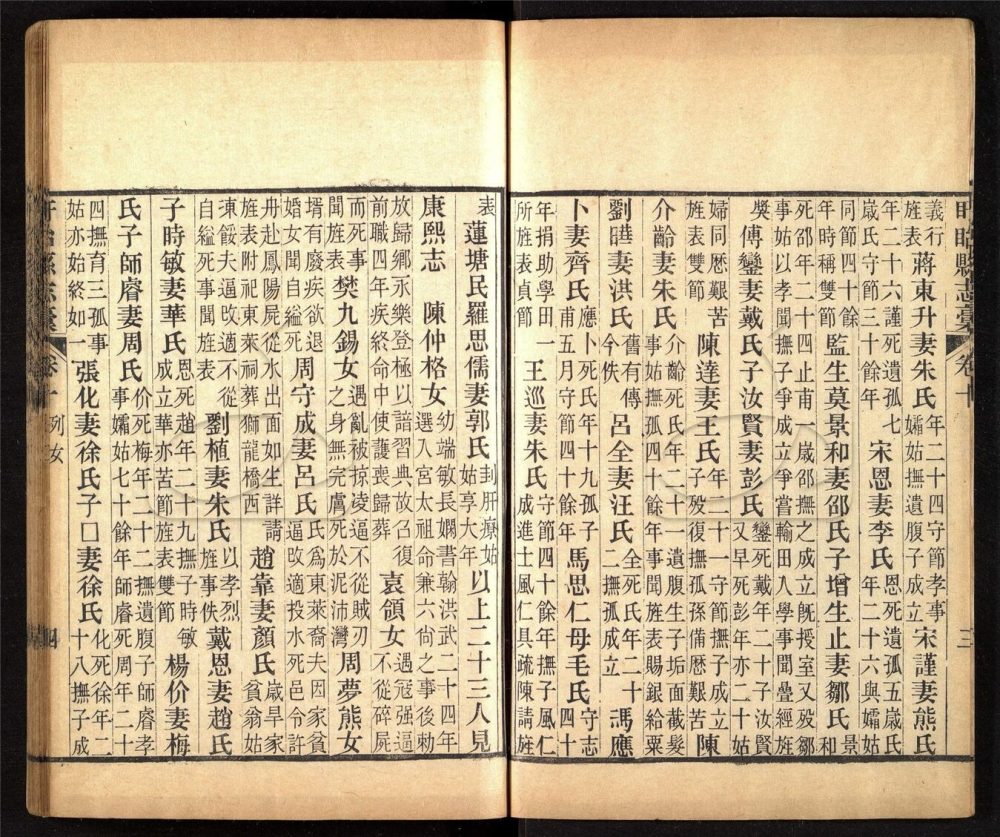 盱眙縣志稾 卷十 三
義行
旌表
蔣東升妻朱氏
年二十四守節孝事
孀姑撫遺腹子成立
宋謹妻熊氏
年二十六謹死遺孤七
歲氏守節三十餘年
宋恩妻李氏
恩死遺孤五歲氏
年二十六與孀姑
同節四十餘
年時稱雙節
監生莫景和妻邵氏子增生止妻鄒氏
景
和
死邵年二十四止甫一歲邵撫之成立旣授室又歿鄒
事姑以孝聞撫子爭成立爭嘗輸田入學事聞疊經旌
奬
傅鑾妻戴氏子汝賢妻彭氏
鑾死戴年二十子汝賢
又早死彭年亦二十姑
婦同歷艱苦
旌表雙節
陳達妻王氏
年二十一守節撫子成立
子歿復撫孤孫備歷艱苦
陳
介齡妻朱氏
介齡死氏年二十一遺腹生子垢面截髮
事姑撫孤四十餘年事聞旌表賜銀給粟
劉曄妻洪氏
舊有傳
今佚
呂全妻汪氏
全死氏年二十
二撫孤成立
馮應
卜妻齊氏
應卜死氏年十九孤子
甫五月守節四十餘年
馬思仁母毛氏
守志
四十
年捐助學田
所旌表貞節
王巡妻朱氏
守節四十餘年撫子風仁
成進士風仁具疏陳請旌
表
蓮塘民羅思儒妻郭氏
刲肝療姑
姑享大年
以上二十三人見
康熙志 陳仲格女
幼端敏長嫻書翰洪武二十四年
選入宮太祖命兼六尚之事後勅
放歸鄉永樂登極以諳習典故召復
前職四年疾終命中使護喪歸葬
袁領女
遇寇强逼
不從碎屍
而死事
聞旌表
樊九錫女
遇亂被掠凌逼不從賊刃
之身無完膚死於泥沛灣
周夢熊女
壻有廢疾欲退
婚女聞自縊死
周守成妻呂氏
氏爲東萊裔夫因家貧
逼改適投水死邑令許
冉赴鳳陽屍從水出面如生詳請
旌表附祀東萊祠葬獅龍橋西
趙靠妻顏氏
歲旱家
貧翁姑
凍餒夫逼改適不從
自縊死事聞旌表
劉植妻朱氏
以孝烈
旌事佚
戴恩妻趙氏
子時敏妻華氏
恩死趙年二十九撫子時敏
成立華亦苦節旌表雙節
楊价妻梅
氏子師睿妻周氏
价死梅年二十二撫遺腹子師睿孝
事孀姑七十餘年師睿死周年二十
四撫育三孤事
姑亦始終如一
張化妻徐氏子口妻徐氏
化死徐年二
十八撫子成
盱眙縣志稾 卷十 列女 四